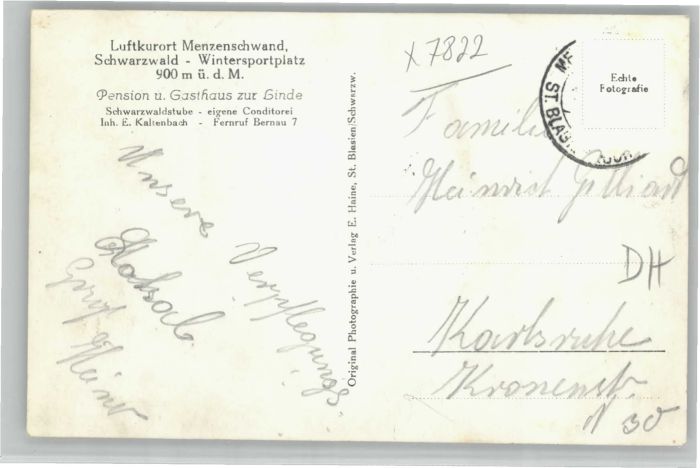 Luftkurort Menzenschwand,
Schwarzwald - Wintersportplatz
900 m ü. d. M.
Pension u. Gasthaus zur Linde
Schwarzwaldstube - eigene Conditorei
Inh. E. Kaltenbach - Fernruf Bernau 7
Unsere
Verpflegungs
Lokal
Heinr
Original Photographie u. Verlag E. Haine, St. Blasien/Schwarzw.
x 7822
Echte
Fotografie
ST. BLAS
Familie
Heinrich
DH
Karlsruhe
Kronenstr.
N 30